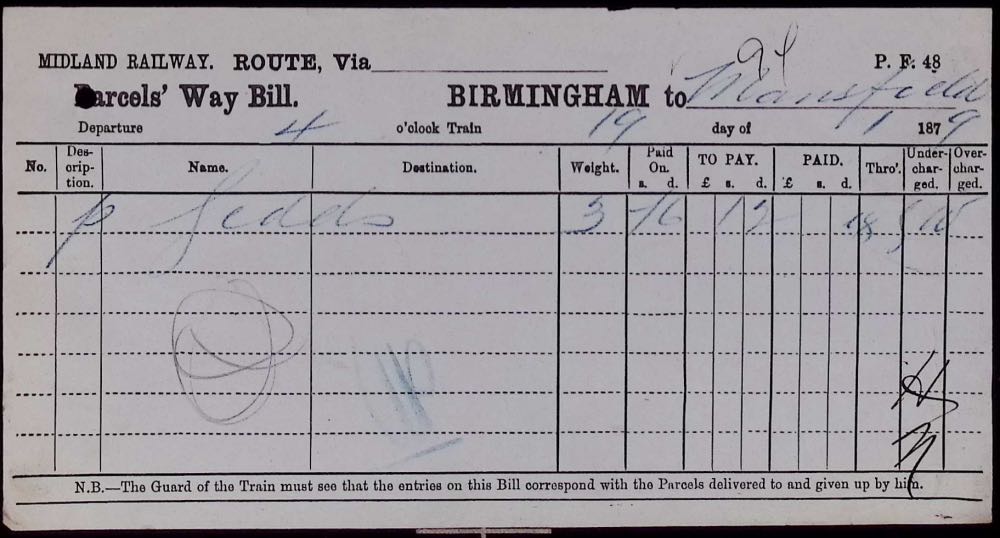 MIDLAND RAILWAY. ROUTE, Via
P. F. 48
Parcels' Way Bill. BIRMINGHAM to Mansfield
Departure 4 o'clock Train 19 day of 1 1879
No. Des-crip-tion. Name. Destination. Weight. Paid On. s. d. TO PAY. £ s. d. PAID. £ s. d. Thro'. Under-char-ged. Over-char-ged.
p 3 1 2
N.B.—The Guard of the Train must see that the entries on this Bill correspond with the Parcels delivered to and given up by him.